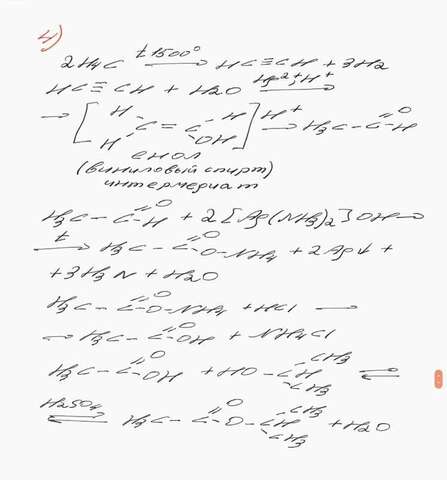 4)
2H₄C —t 1500°→ HC≡CH + 3H₂
HC≡CH + H₂O —Hg²⁺, H⁺→
→ [H H C=C H OH] —H⁺→ H₃C–C=O H
енол
(виниловый спирт)
интермедиат
H₃C–C=O H + 2[Ag(NH₃)₂]OH →
—t→ H₃C–C=O O–NH₄ + 2Ag↓ +
+3H₃N + H₂O
H₃C–C=O O–NH₄ + HCl →
→ H₃C–C=O OH + NH₄Cl
H₃C–C=O OH + HO–CH CH₃ CH₃ ⇌
H₂SO₄ ⇌ H₃C–C=O O–CH CH₃ CH₃ + H₂O